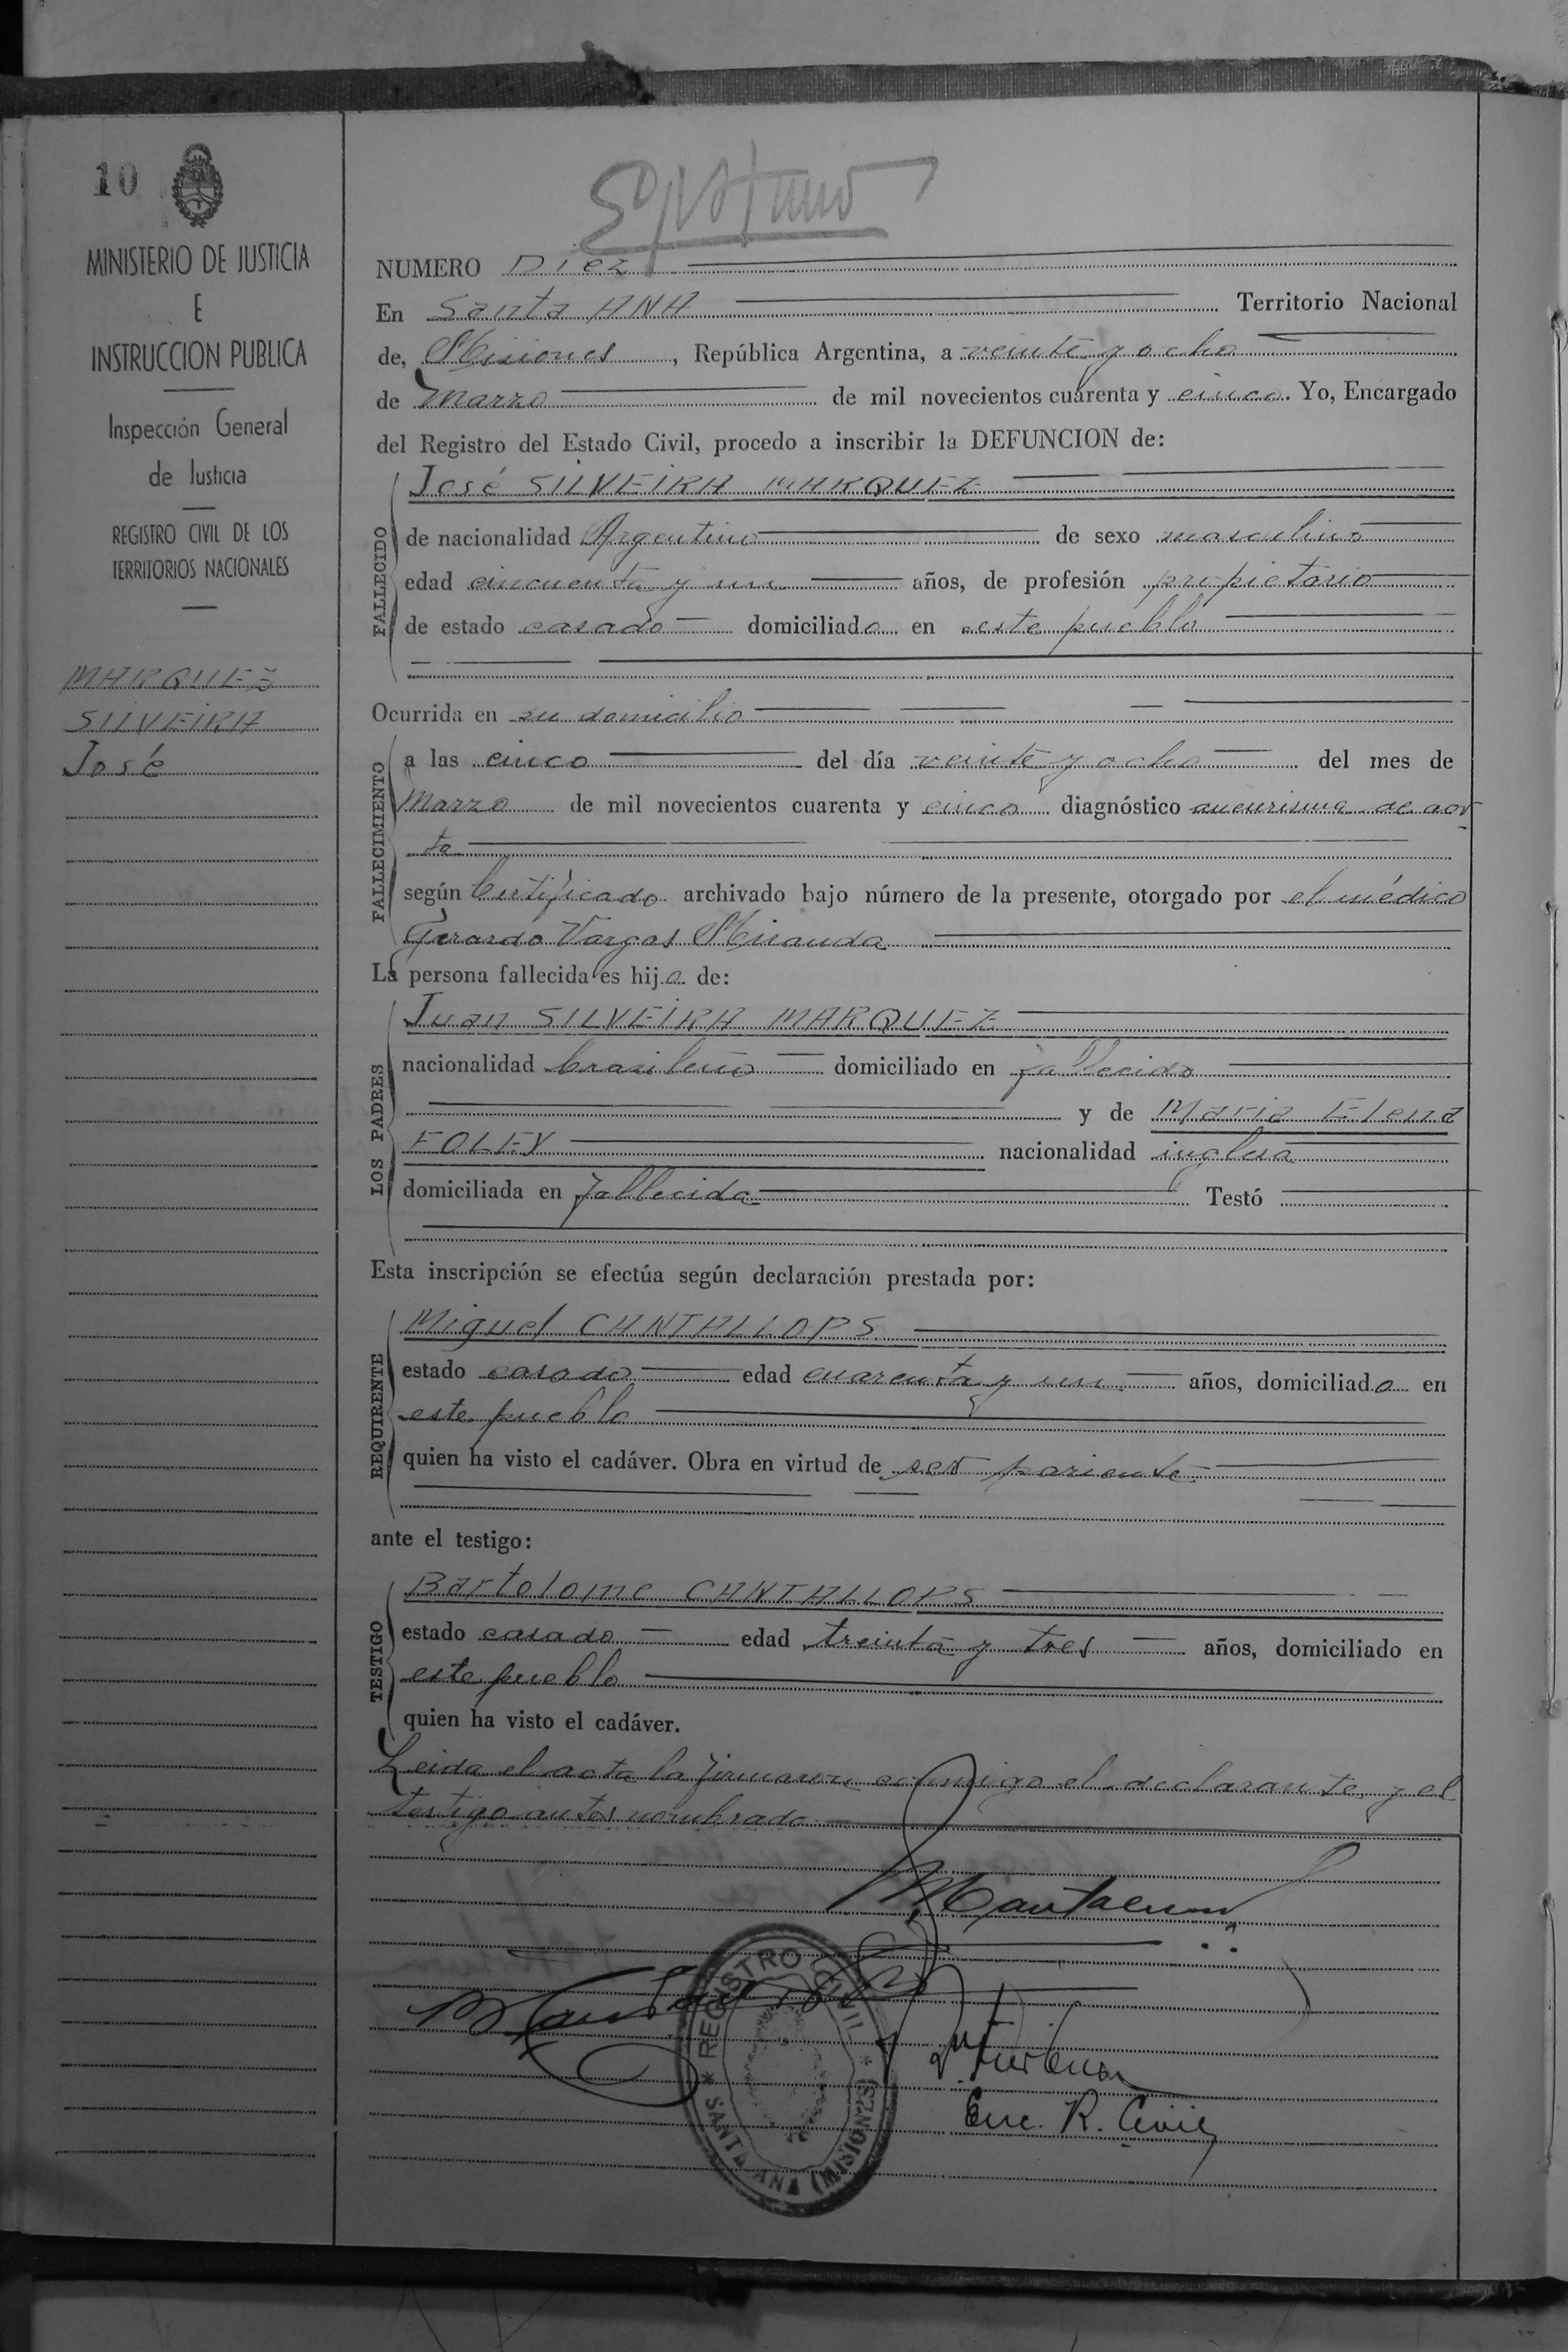 10
MINISTERIO DE JUSTICIA
E
INSTRUCCION PUBLICA
Inspección General
de Justicia
REGISTRO CIVIL DE LOS
TERRITORIOS NACIONALES
MARQUEZ
SILVEIRA
José
NUMERO Diez
En Santa ANA Territorio Nacional
de, Misiones, República Argentina, a veinte y ocho
de Marzo de mil novecientos cuarenta y cinco. Yo, Encargado
del Registro del Estado Civil, procedo a inscribir la DEFUNCION de:
FALLECIDO
José SILVEIRA MARQUEZ
de nacionalidad Argentino de sexo masculino
edad cincuenta y un años, de profesión propietario
de estado casado domiciliado en este pueblo
Ocurrida en su domicilio
FALLECIMIENTO
a las cinco del día veinte y ocho del mes de
Marzo de mil novecientos cuarenta y cinco diagnóstico aneurisma de aor
ta
según Certificado archivado bajo número de la presente, otorgado por el médico
Gerardo Vargas Miranda
La persona fallecida es hijo de:
LOS PADRES
Juan SILVEIRA MARQUEZ
nacionalidad brasileño domiciliado en fallecido
y de Maria Elena
FOLEY nacionalidad inglesa
domiciliada en fallecida Testó
Esta inscripción se efectúa según declaración prestada por:
REQUIRENTE
Miguel CANTALLOPS
estado casado edad cuarenta y un años, domiciliado en
este pueblo
quien ha visto el cadáver. Obra en virtud de ser pariente
ante el testigo:
TESTIGO
Bartolome CANTALLOPS
estado casado edad treinta y tres años, domiciliado en
este pueblo
quien ha visto el cadáver.
Leida el acta la firmaron conmigo el declarante y el
testigo antes nombrado
REGISTRO CIVIL
* SANTA ANA (MISIONES) *
Enc. R. Civil